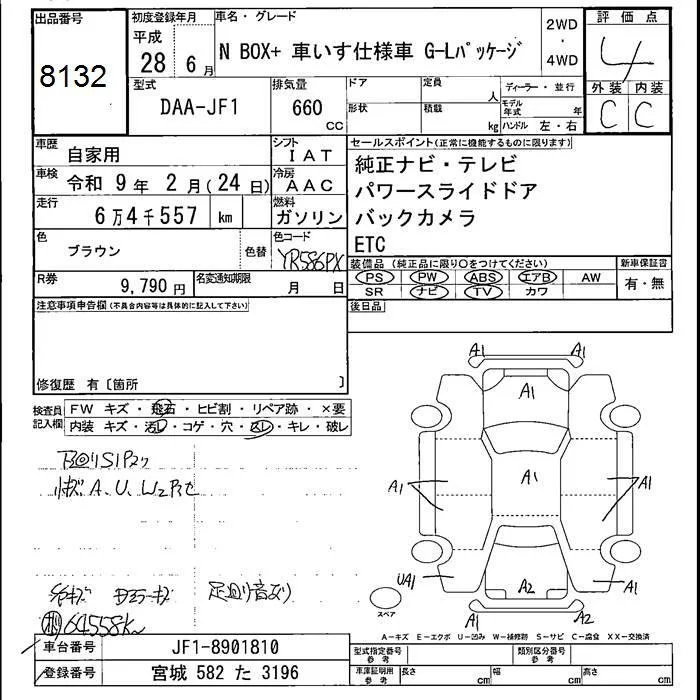 出品番号
8132
初度登録年月
平成
28 6月
車名・グレード
N BOX+ 車いす仕様車 G-Lパッケージ
2WD
・
4WD
評価点
4
外装 内装
C C
型式
DAA-JF1
排気量
660
cc
ドア
形状
定員
人
積載
kg
ディーラー・並行
モデル年式
年
ハンドル 左・右
車歴
自家用
シフト
IAT
車検
令和 9年 2月(24日)
冷房
AAC
走行
6万4千557 km
燃料
ガソリン
色
ブラウン
色替
色コード
YR586PX
R券
9,790円
名変通知期限
月 日
セールスポイント(正常に機能するものに限ります)
純正ナビ・テレビ
パワースライドドア
バックカメラ
ETC
装備品(純正品に限り○をつけてください)
PS PW ABS エアB AW
SR ナビ TV カワ
新車保証書
有・無
後日品
注意事項申告欄(不具合内容等は具体的に記入して下さい)
修復歴 有〔箇所 〕
検査員記入欄
FW キズ・飛石・ヒビ割・リペア跡・×要
内装 キズ・汚レ・コゲ・穴・スレ・キレ・破レ
A.U.W2
足廻り音あり
64558K
A1 A1
A1
A1
A1 A1
UA1 A2 A1
A1 A2
スペア
A-キズ E-エクボ U-凹み W-補修跡 S-サビ C-腐食 XX-交換済
車台番号
JF1-8901810
登録番号
宮城 582 た 3196
型式指定番号
参考
類別区分番号
参考
車庫証明用
参考
長さ cm 幅 cm 高さ cm